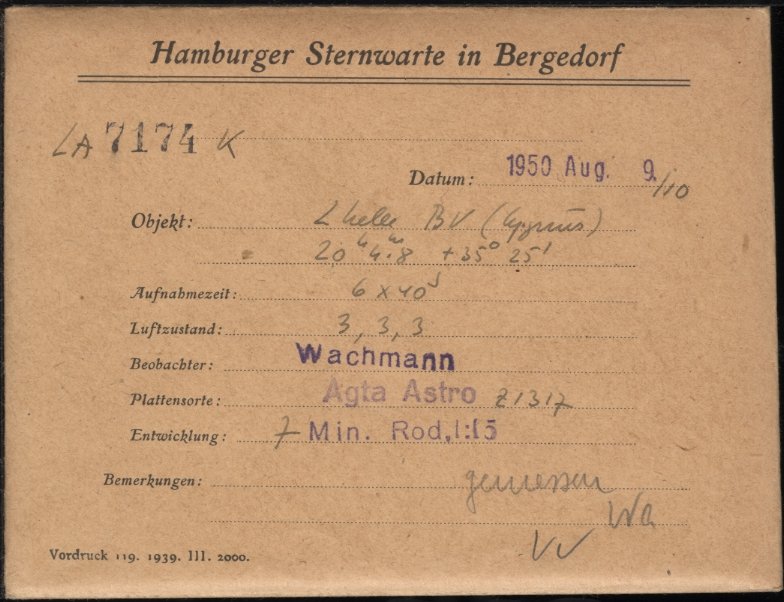 Hamburger Sternwarte in Bergedorf
LA 7174 K
Datum: 1950 Aug. 9./10
Objekt: 2 helle BV (Cygnus)
20ʰ 4ᵐ.8 +35° 25'
Aufnahmezeit: 6 x 40ˢ
Luftzustand: 3, 3, 3
Beobachter: Wachmann
Plattensorte: Agfa Astro Z1317
Entwicklung: 7 Min. Rod, 1:15
Bemerkungen: gemessen
Wa
VV
Vordruck 119. 1939. III. 2000.